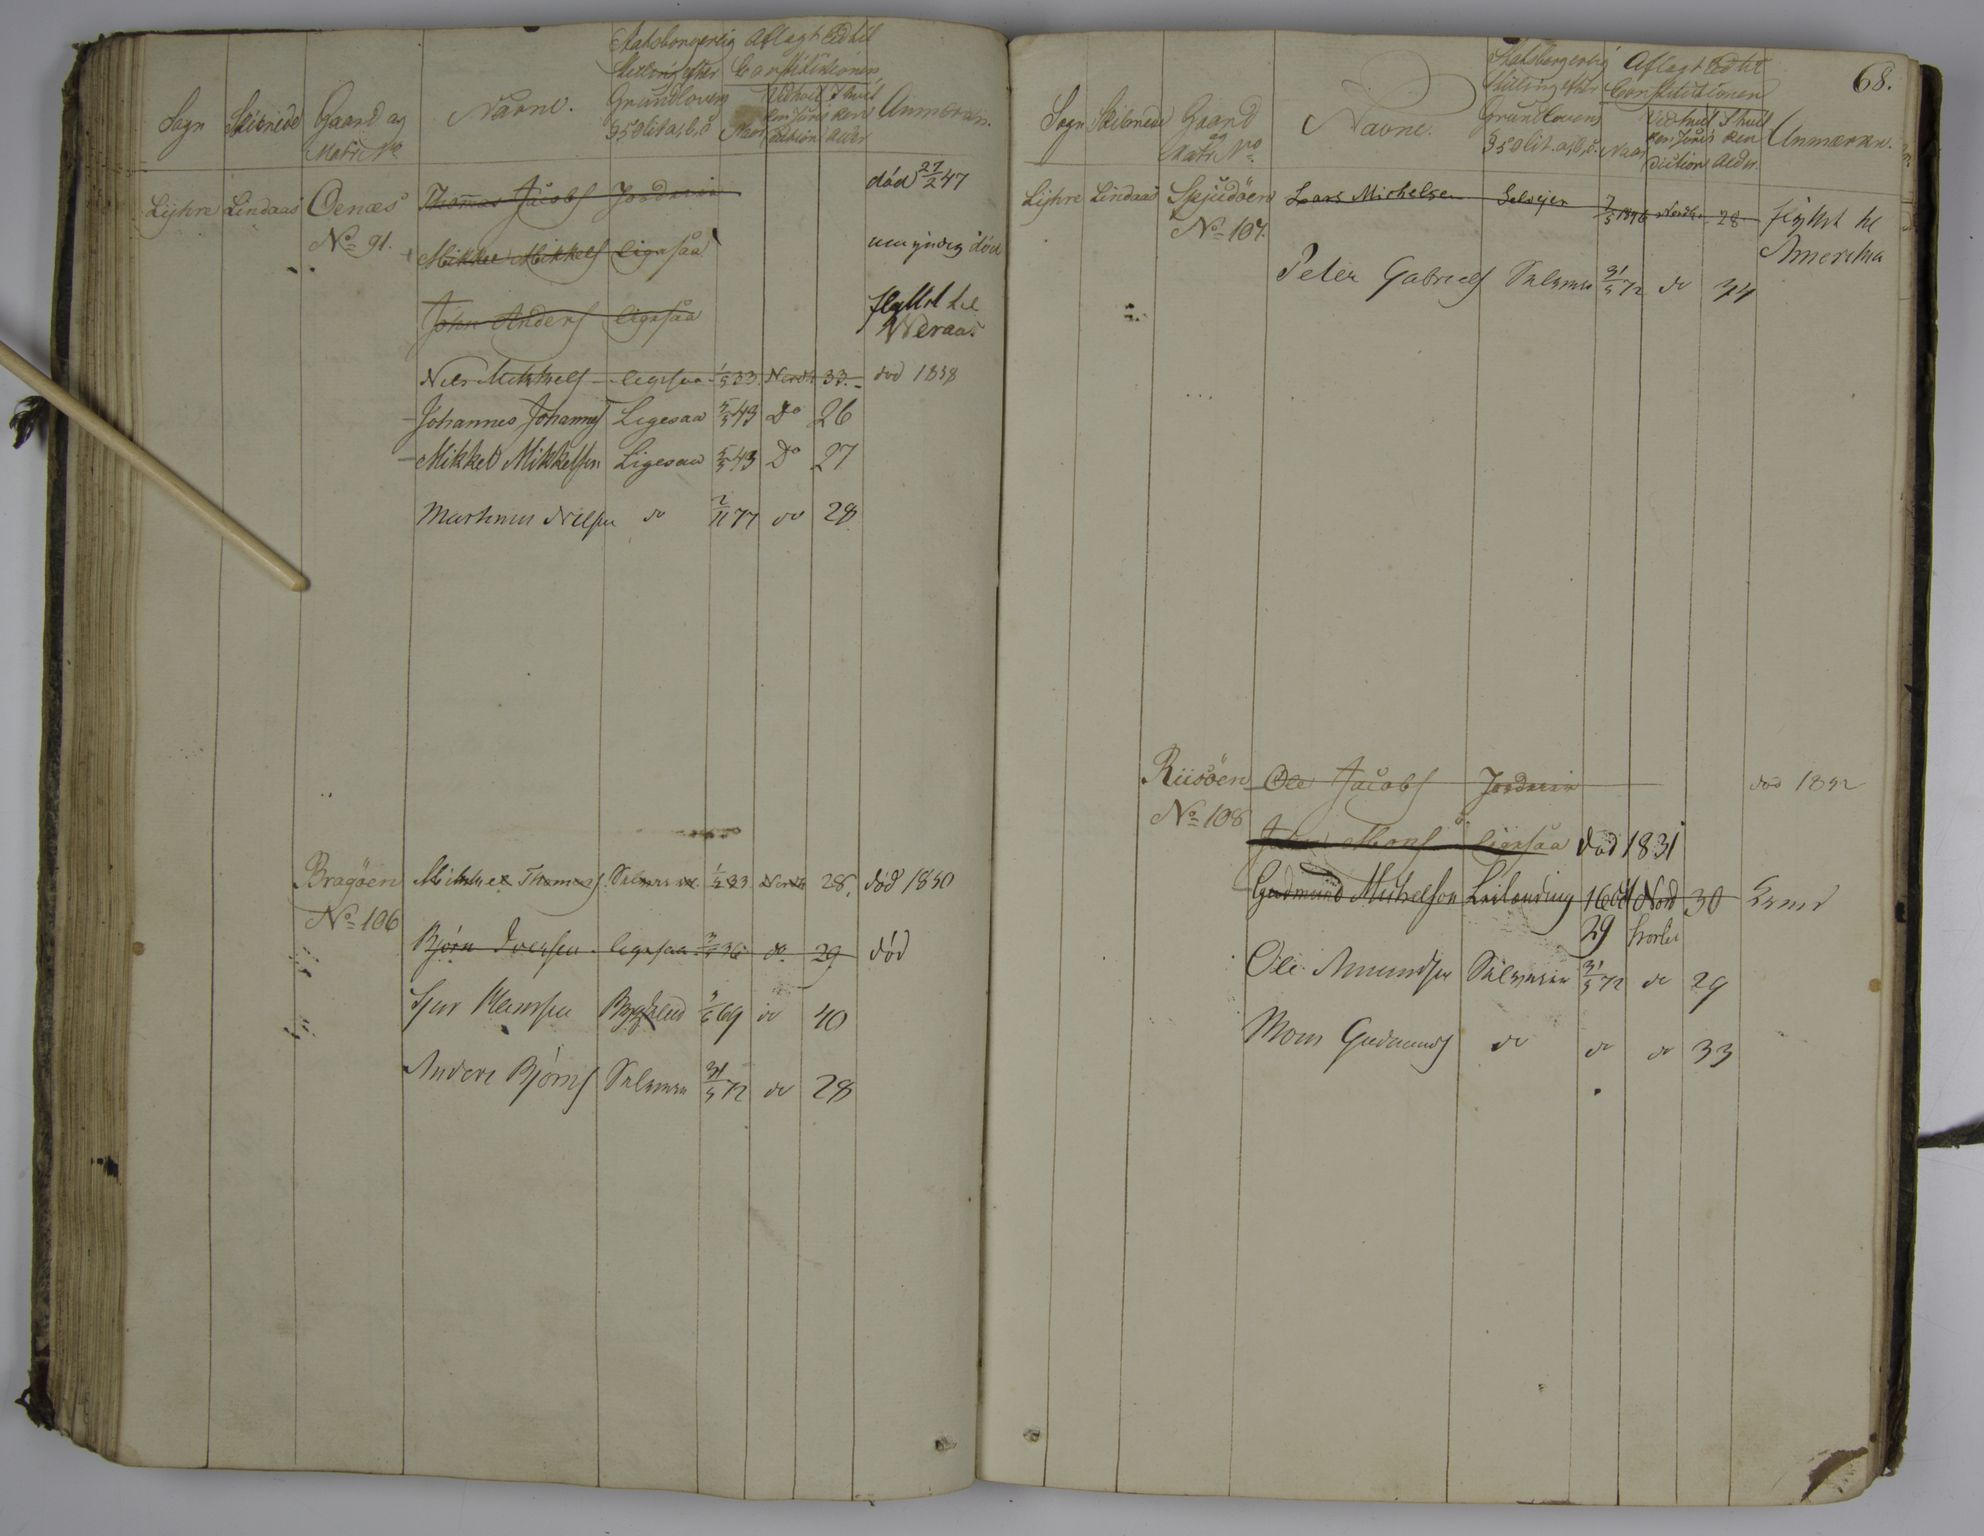 Sogn Skibrede Gaard og Matr No Navne. Statsborgerlig Stilling efter Grundlovens § 50 lit a, b, c Aflagt Eed til Constitutionen Naar Ved hvilken Jurisdiction I hvilken Alder Anmærkn.
Lyhre Lindaas Oenæs Thomas Jacobs Jordeier død 27/2 47
No 91. Mikkel Mikkels ligesaa død
John Anders ligesaa flyttet til
Nils Mikkels ligesaa 1/5 33. Nordh 33. død 1838
Johannes Johannes Ligesaa 5/5 43 Do 26
Mikkel Mikkelsen Ligesaa 5/5 43 Do 27
Martinus Nilsen do 2/11 77 do 28
Bragøen Mikkel Thomas 1/2 33 Nordh 28. død 1850
No 106
Bjørn Iversen ligesaa 36 do 29 død
Sjur 69 do 40
Anders Bjørns Selveier 31/5 72 do 28
68.
Sogn Skibrede Gaard og Matr No Navne. Statsborgerlig Stilling efter Grundlovens § 50 lit. a, b, c. Aflagt Eed til Constitutionen Naar Ved hvilken Jurisdiction I hvilken Alder. Anmærkn.
Lyhre Lindaas Spjudöen Lars Michelsen Selveier 7/5 1846 Nordh. 28 flyttet til
No 107. Amerika
Peter Gabriels Selveier 31/5 72 do 34
Riisöen Ole Jacobs Jordeier død 1852
No 108
Mons ligesaa død 1831
Gudmund Michelson Leilending 16 Nord 30
29 horles
Ole Amundsen Selveier 31/5 72 do 29
Mons Gudmunds do do do 33